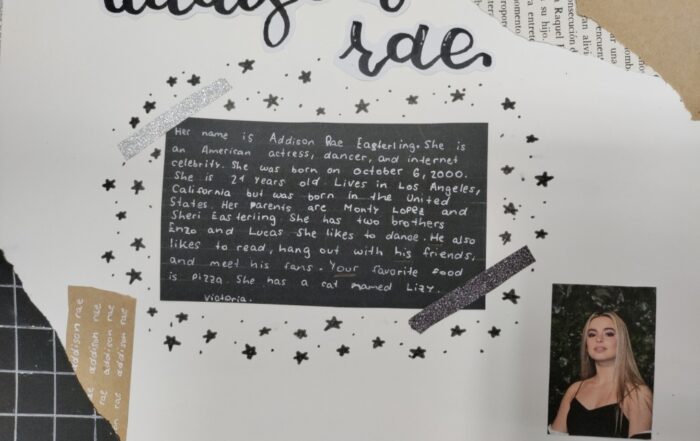 addison
rae
Her name is Addison Rae Easterling. She is
an American actress, dancer, and internet
celebrity. She was born on October 6, 2000.
She is 21 years old. Lives in Los Angeles,
California but was born in the United
States. Her parents are Monty Lopez and
Sheri Easterling She has two brothers
Enzo and Lucas She likes to dance. He also
likes to read, hang out with his friends,
and meet his fans. Your favorite food
is pizza. She has a cat named Lizy.
victoria.
addison rae
rae addition rae
rae addison rae
addison rae
consecución d
en alivi
encuen
una
su hijo
momento
Raquel
entre